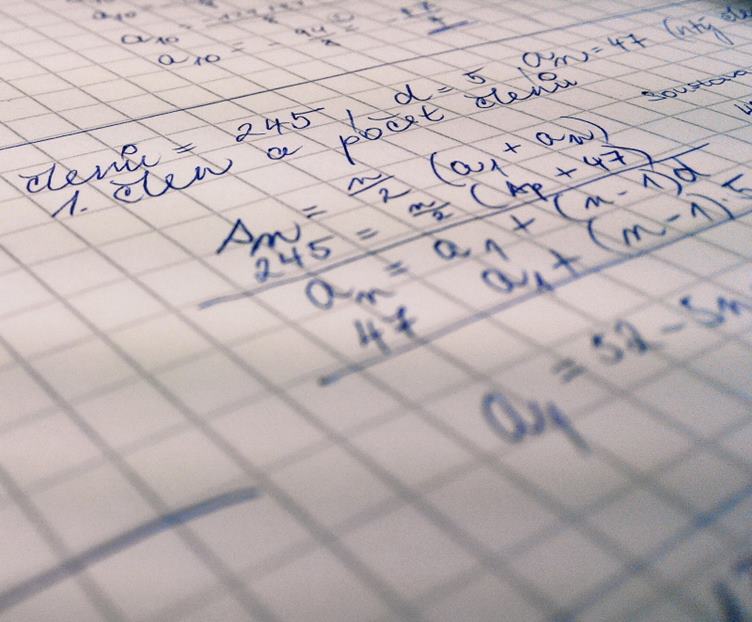 a10 =
a10 =
a10 = -
členů = 245, d = 5, an = 47 (ntý
1. člen a počet členů
sn = n/2 (a1 + an)
245 = n/2 (a1 + 47)
an = a1 + (n - 1)d
47 a1 + (n - 1).5
a1 = 52 - 5n